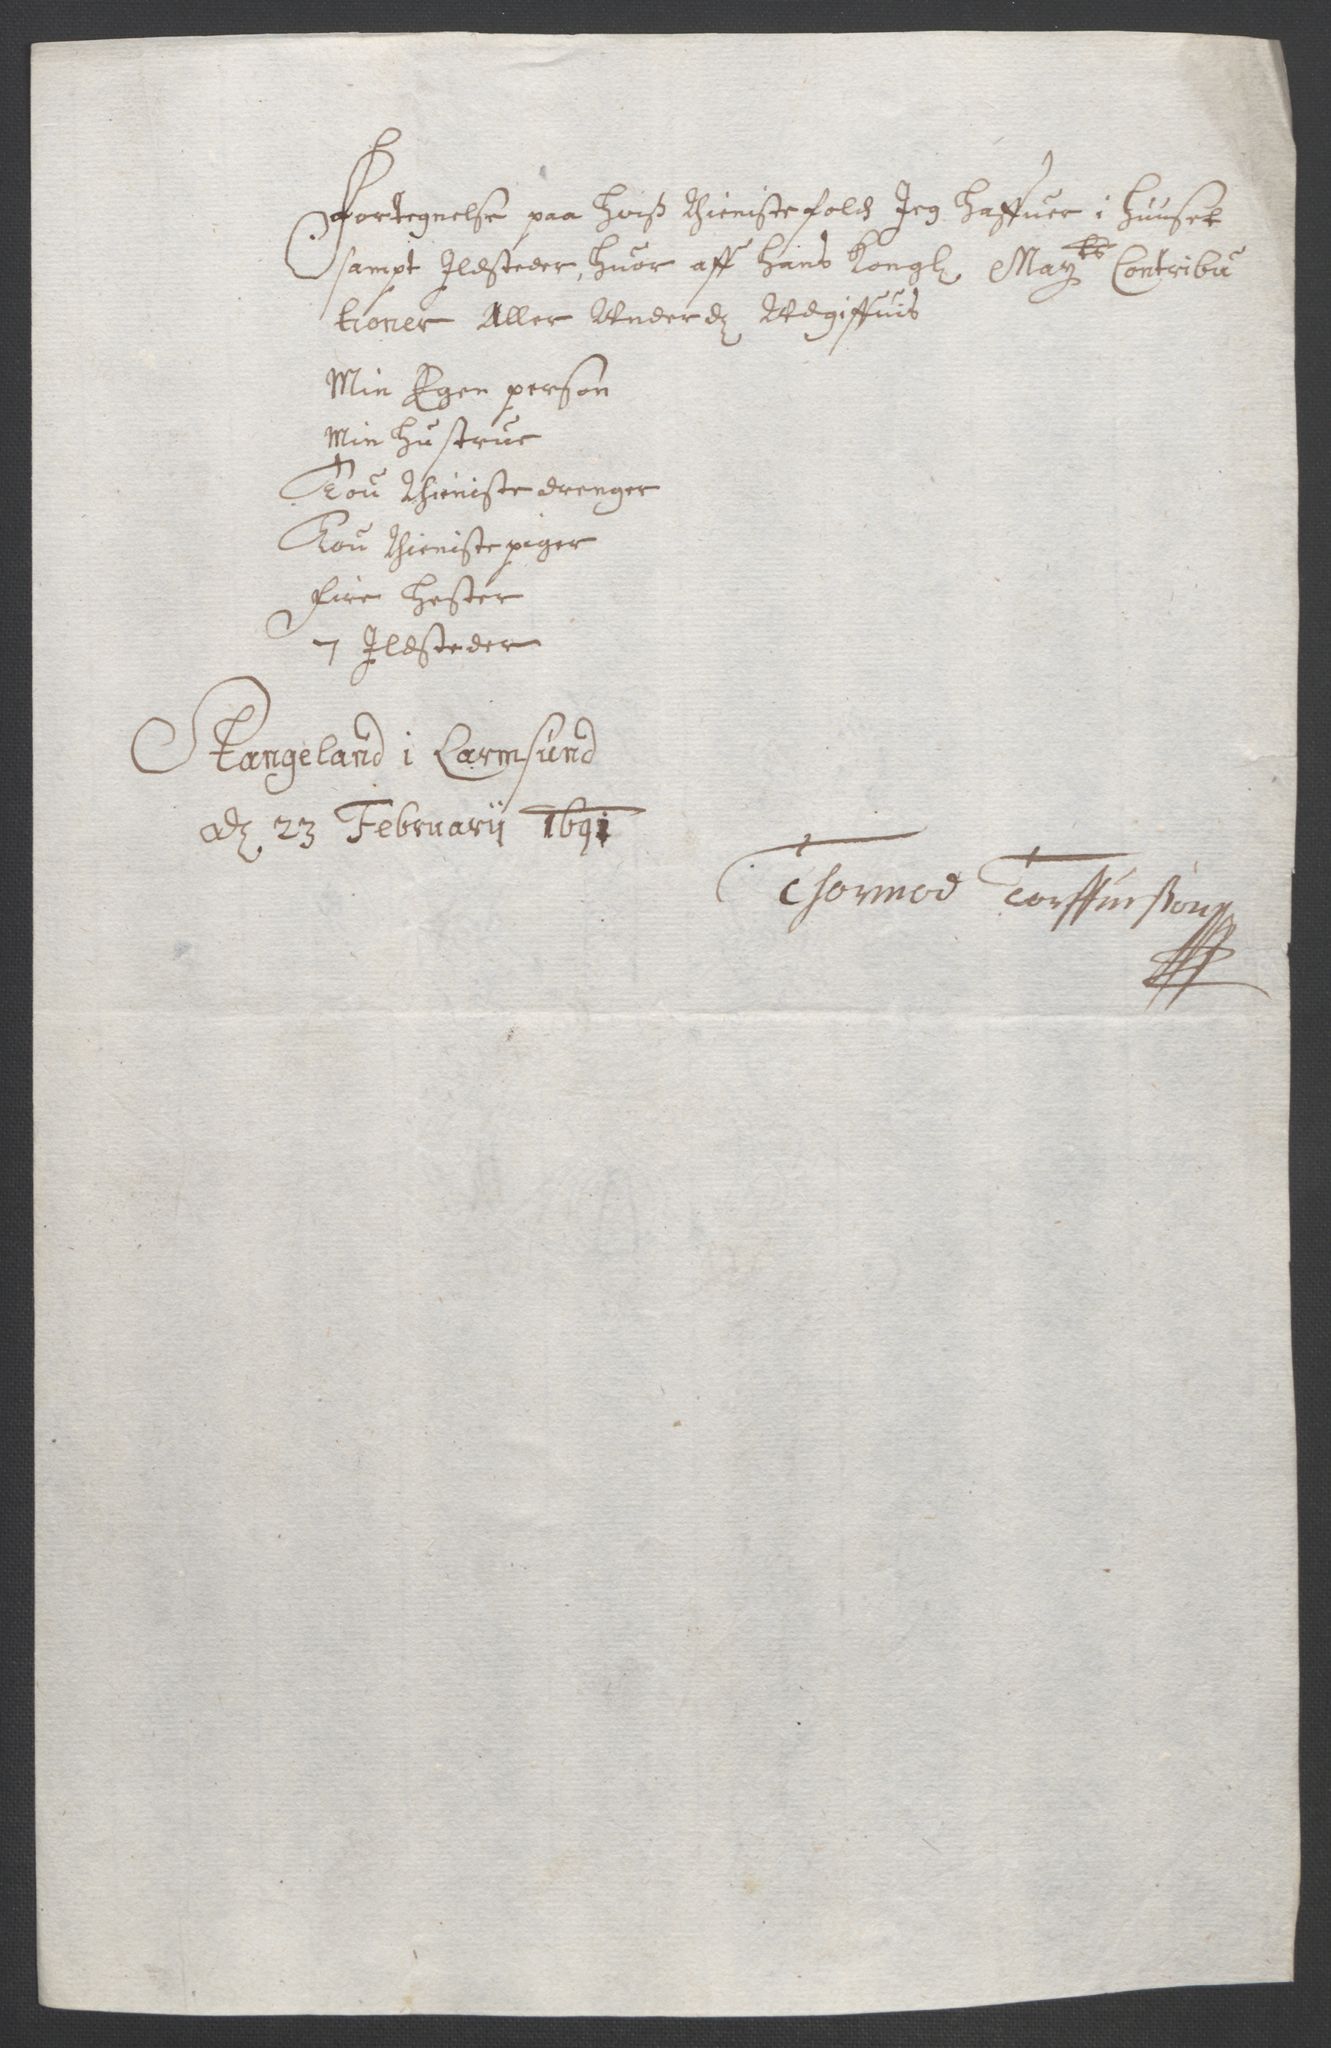 Fortegnelse paa hviß thieniste folch Jeg haffuer i huuset
sampt Jldsteder, huor aff hans Kongl May<sup>ts</sup> Contribu
tioner Aller Underd Udgiffuis
Min Egen person
Min hustrue
Tou thieniste drenger
Tou thieniste piger
Fire hester
7 Jldsteder
Stangeland i Carmsund
ad 23 Februarij 1691
Thormod Torffuesßøn